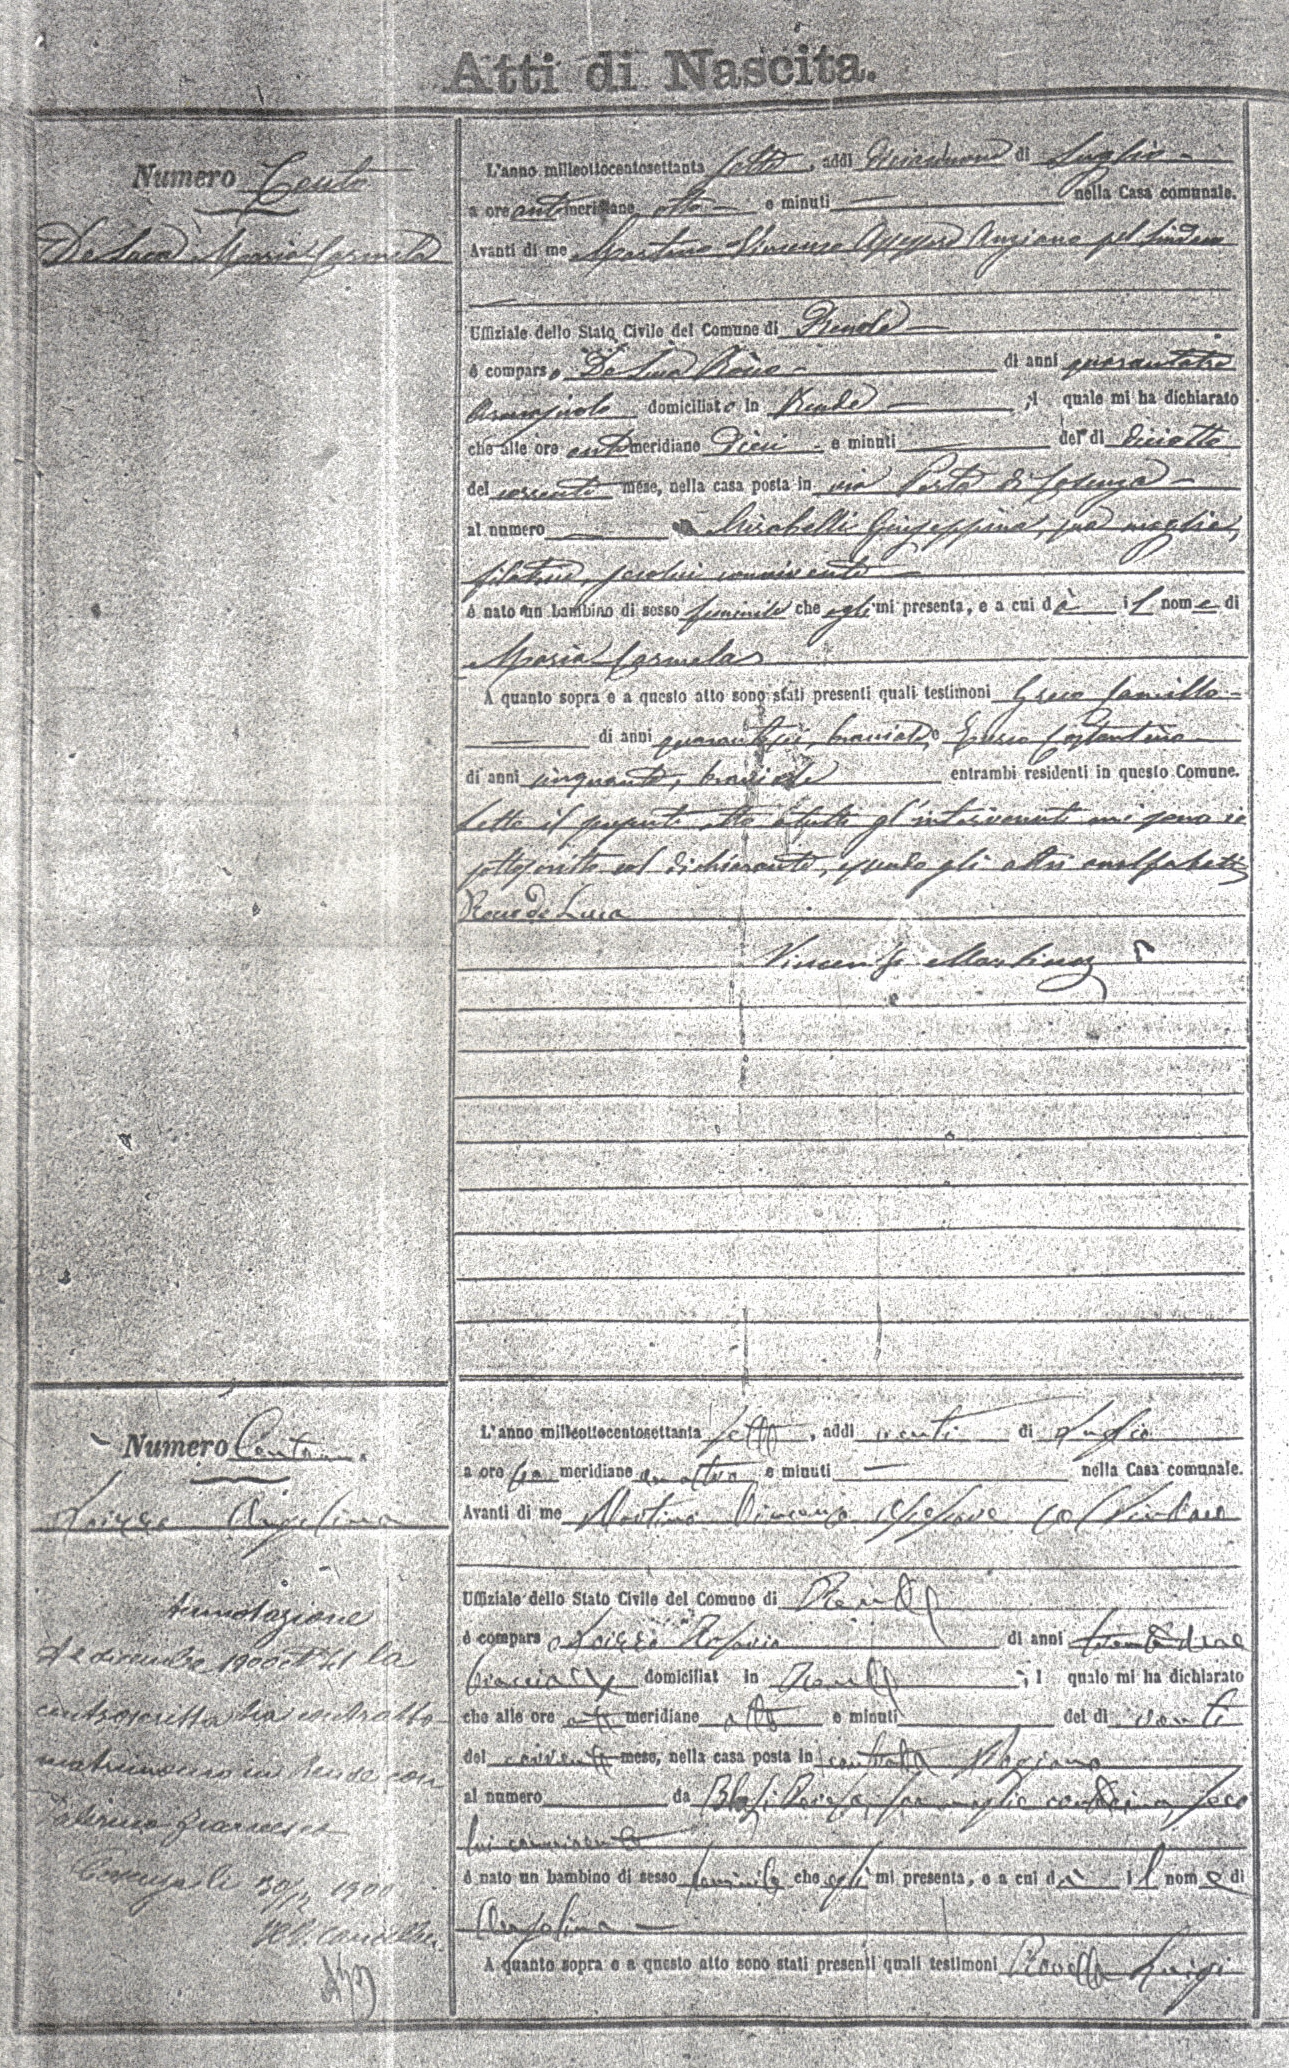 Atti di Nascita.
Numero Cento
De Luca Maria Carmela
L'anno milleottocentosettanta sette, addì diciannove di Luglio
a ore antimeridiane otto e minuti nella Casa comunale.
Avanti di me Martino Vincenzo Assessore Anziano pel Sindaco
Uffiziale dello Stato Civile del Comune di Rende
è comparso De Luca Rocco di anni quarantatre
domiciliato in Rende il quale mi ha dichiarato
che alle ore antimeridiane dieci e minuti del dì diciotto
del corrente mese, nella casa posta in via Porta di Cosenza
al numero Mirabelli Giuseppina, sua moglie,
filatrice, seco lui convivente
è nato un bambino di sesso feminile che egli mi presenta, e a cui dà il nome di
Maria Carmela
A quanto sopra e a questo atto sono stati presenti quali testimoni Greco Camillo
di anni bracciale, e Costantino
di anni cinquanta, bracciale entrambi residenti in questo Comune.
Letto il presente atto a tutti gl'intervenuti mi sono io
sottoscritto col dichiarante, essendo gli altri analfabeti
Rocco de Luca
Vincenzo Martino
Numero Centuno
Loizzo Angelina
L'anno milleottocentosettanta sette, addì venti di Luglio
a ore meridiane quattro e minuti nella Casa comunale.
Avanti di me Martino Vincenzo Assessore pel Sindaco
Uffiziale dello Stato Civile del Comune di Rende
è comparso Loizzo Rosario di anni
bracciale domiciliat in Rende il quale mi ha dichiarato
che alle ore meridiane otto e minuti del dì venti
del corrente mese, nella casa posta in contrada
al numero da Blasi Teresa, sua moglie contadina, seco
lui convivente
è nato un bambino di sesso feminile che egli mi presenta, e a cui dà il nome di
Angelina
A quanto sopra e a questo atto sono stati presenti quali testimoni Rovella Luigi
Annotazione
dicembre 1900 la
controscritta ha contratto
matrimonio in Rende con
Francesco
Cosenza li 30/12 1900